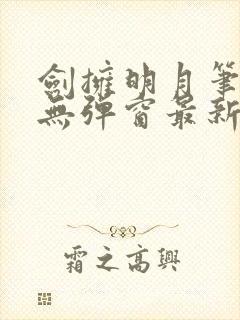 劍擁明月筆
無彈窗最新
霜之高興